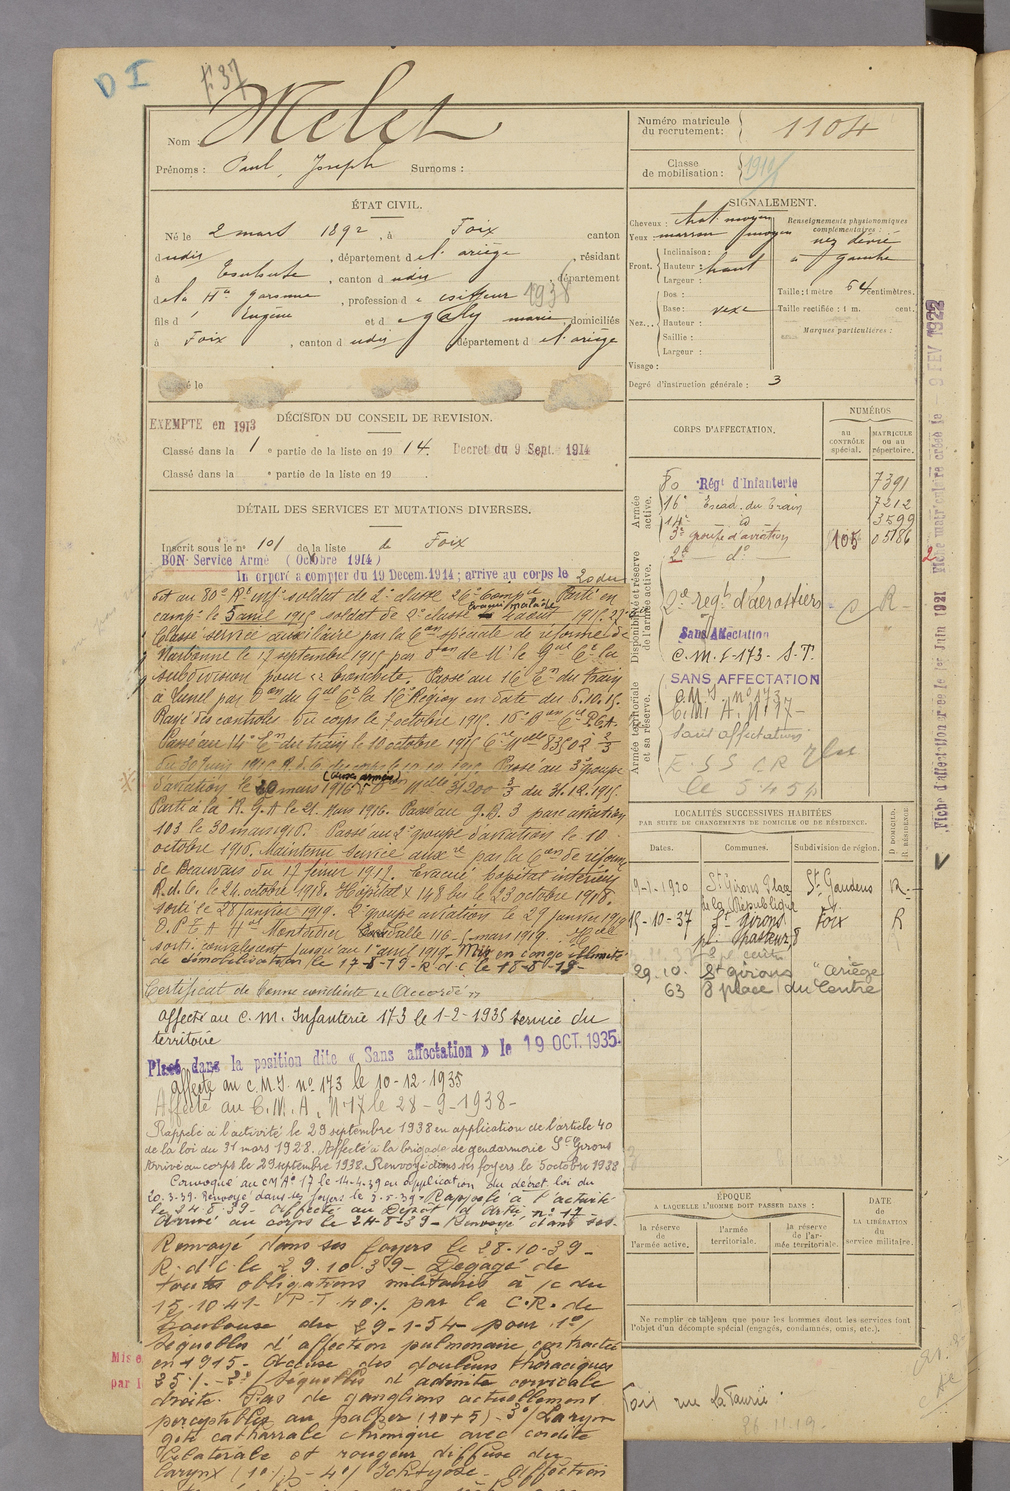 D I
F 37
Nom : Melet
Prénoms : Paul, Joseph Surnoms :
ÉTAT CIVIL.
Né le 2 mars 1892, à Foix canton
dudit, département de l'ariège, résidant
à Toulouse, canton dudit, département
de la Hte garonne, profession de coiffeur 1938
fils d' Eugène et de galy marie domiciliés
à Foix, canton dudit département de l'ariège
é le
EXEMPTE en 1913
DÉCISION DU CONSEIL DE REVISION.
Classé dans la 1 e partie de la liste en 1914. Decret du 9 Sept. 1914
Classé dans la e partie de la liste en 19
DÉTAIL DES SERVICES ET MUTATIONS DIVERSES.
Inscrit sous le no 101 de la liste de Foix
BON Service Armé (Octobre 1914)
Incorporé à compter du 19 Decem. 1914 ; arrivé au corps le 20 du
dit au 80e Rt inf. soldat de 2e classe 26e Compie Parti en
campe le 5 avril 1915 soldat de 2e classe Evacué malade 2 aout 1915.
Classé service auxiliaire par la Con spéciale de réforme de
Narbonne le 17 septembre 1915 par don de Mr le Gal Ct la
subdivision pour bronchite. Passé au 16e En du Train
à Lunel par don du Gal Ct la 16e Région en date du 6.10.15.
Rayé des controles du corps le 7 octobre 1915.
Passé au 14e En du train le 10 octobre 1915
Passé au 3e groupe
d'aviation le 20 mars 1916 (aux armées) don Mlle 31200 2/3 du 31.12.1915.
Parti à la R. G. A le 21 Mars 1916. Passé au G.B. 3 parc aviation
103 le 30 mars 1916. Passé au 2e groupe d'aviation le 10
octobre 1916. Maintenu service auxre par la Con de réforme
de Beauvais du 17 février 1917. Evacué hopital intérieur
R.d.C. le 21 octobre 1918. Hôpital X 148 bis le 23 octobre 1918.
sorti le 28 janvier 1919. 2e groupe aviation le 29 janvier 1919
Montdidier 116 mars 1919.
sorti convalescent jusqu'au 1er avril 1919. Mis en congé illimité
de démobilisation le 17-8-19 - R.d.c. le 18-8-19-
Certificat de bonne conduite "Accordé"
affecté au C.M. Infanterie 173 le 1-2-1935 service du
territoire
Placé dans la position dite « Sans affectation » le 19 OCT. 1935.
affecté au C.M.I. no 173 le 10-12-1935
Affecté au C.M.A. N°17 le 28-9-1938-
Rappelé à l'activité le 29 septembre 1938 en application de l'article 40
de la loi du 31 mars 1928. Affecté à la brigade de gendarmerie St Girons
Arrivé au corps le 29 septembre 1938. Renvoyé dans ses foyers le 5 octobre 1938
Convoqué au CMA° 17 le 14-4-39 en application du décret loi du
20.3.39. Renvoyé dans ses foyers le 3-5-39 - Rappelé à l'activité
le 24.8.39 - affecté au Dépot d'Artie no 17 -
Arrivé au corps le 24-8-39 - Renvoyé dans ses-
Renvoyé dans ses foyers le 28-10-39-
R.d C. le 29.10.39- Dégagé de
toutes obligations militaires à /c du
15-10-41- P.T. 40% par la C.R. de
Toulouse du 29-1-54 pour 1°/
Séquelles d'affection pulmonaire contractée
en 1915- Accuse des douleurs thoraciques
25%. - 2°/ Séquelles d'adénite cervicale
droite. Pas de ganglions actuellement
perceptibles au palper (10+5) - 3°/ Laryn
gite catharrale chronique avec cordite
bilatérale et rougeur diffuse du
larynx (10%) - 4°/ Ichtyose - affection
Mis e
par l
Numéro matricule du recrutement : 1104
Classe de mobilisation : 1914
SIGNALEMENT.
Cheveux : chat. moyen
Yeux marron moyen
Front. Inclinaison :
Hauteur : haut
Largeur :
Nez... Dos :
Base : vexe
Hauteur :
Saillie :
Largeur :
Visage :
Degré d'instruction générale : 3
Renseignements physionomiques complémentaires :
nez dévié
à gauche
Taille : 1 mètre 64 centimètres.
Taille rectifiée : 1 m. cent.
Marques particulières :
CORPS D'AFFECTATION.
NUMÉROS
AU CONTRÔLE spécial.
MATRICULE ou au répertoire.
Armée active.
80 Régt d'Infanterie 7391
16e Escad. du Train 7212
14e id 3599
3e groupe d'aviation 105 05186
2e do 2
Disponibilité et réserve de l'armée active.
2e regt d'aérostiers C R -
Sans Affectation
C.M.I-173- S.T.
SANS AFFECTATION
Armée territoriale et sa réserve.
C.M.I. no 173
C.M.A. N°17-
Sans affectation
le 5 4 54
LOCALITÉS SUCCESSIVES HABITÉES
PAR SUITE DE CHANGEMENTS DE DOMICILE OU DE RÉSIDENCE.
Dates. Communes. Subdivision de région. D. DOMICILE. R. RÉSIDENCE.
19-1-1920 St Girons Place de la République St Gaudens R -
15-10-37 St Girons pl. Pasteur, 8 Foix R
29.10.63 St girons 8 place du Centre "ariège
ÉPOQUE
À LAQUELLE L'HOMME DOIT PASSER DANS :
la réserve de l'armée active.
l'armée territoriale.
la réserve de l'armée territoriale.
DATE DE LA LIBÉRATION du service militaire.
Ne remplir ce tableau que pour les hommes dont les services font
l'objet d'un décompte spécial (engagés, condamnés, omis, etc.).
Foix rue La Faurie
26.11.19-
Fiche d'affectation créée le 1er Juin 1921 Fiche matriculaire créée le - 9 FEV 1922